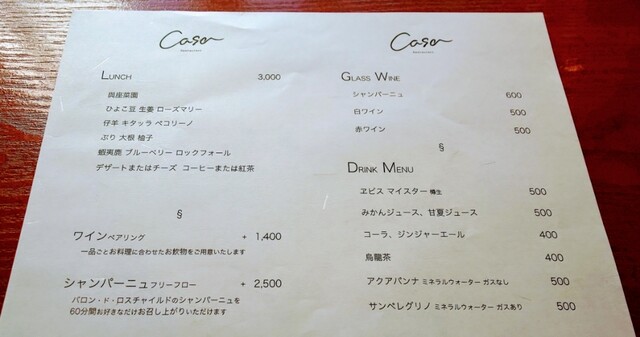 Casa
LUNCH 3,000
與座菜園
ひよこ豆 生姜 ローズマリー
仔羊 キタッラ ペコリーノ
ぶり 大根 柚子
蝦夷鹿 ブルーベリー ロックフォール
デザートまたはチーズ コーヒーまたは紅茶
§
ワインペアリング + 1,400
一品ごとお料理に合わせたお飲物をご用意いたします
シャンパーニュフリーフロー + 2,500
バロン・ド・ロスチャイルドのシャンパーニュを
60分間お好きなだけお召し上がりいただけます
Casa
GLASS WINE
シャンパーニュ 600
白ワイン 500
赤ワイン 500
§
DRINK MENU
ヱビス マイスター 樽生 500
みかんジュース、甘夏ジュース 500
コーラ、ジンジャーエール 400
烏龍茶 400
アクアパンナ ミネラルウォーター ガスなし 500
サンペレグリノ ミネラルウォーター ガスあり 500